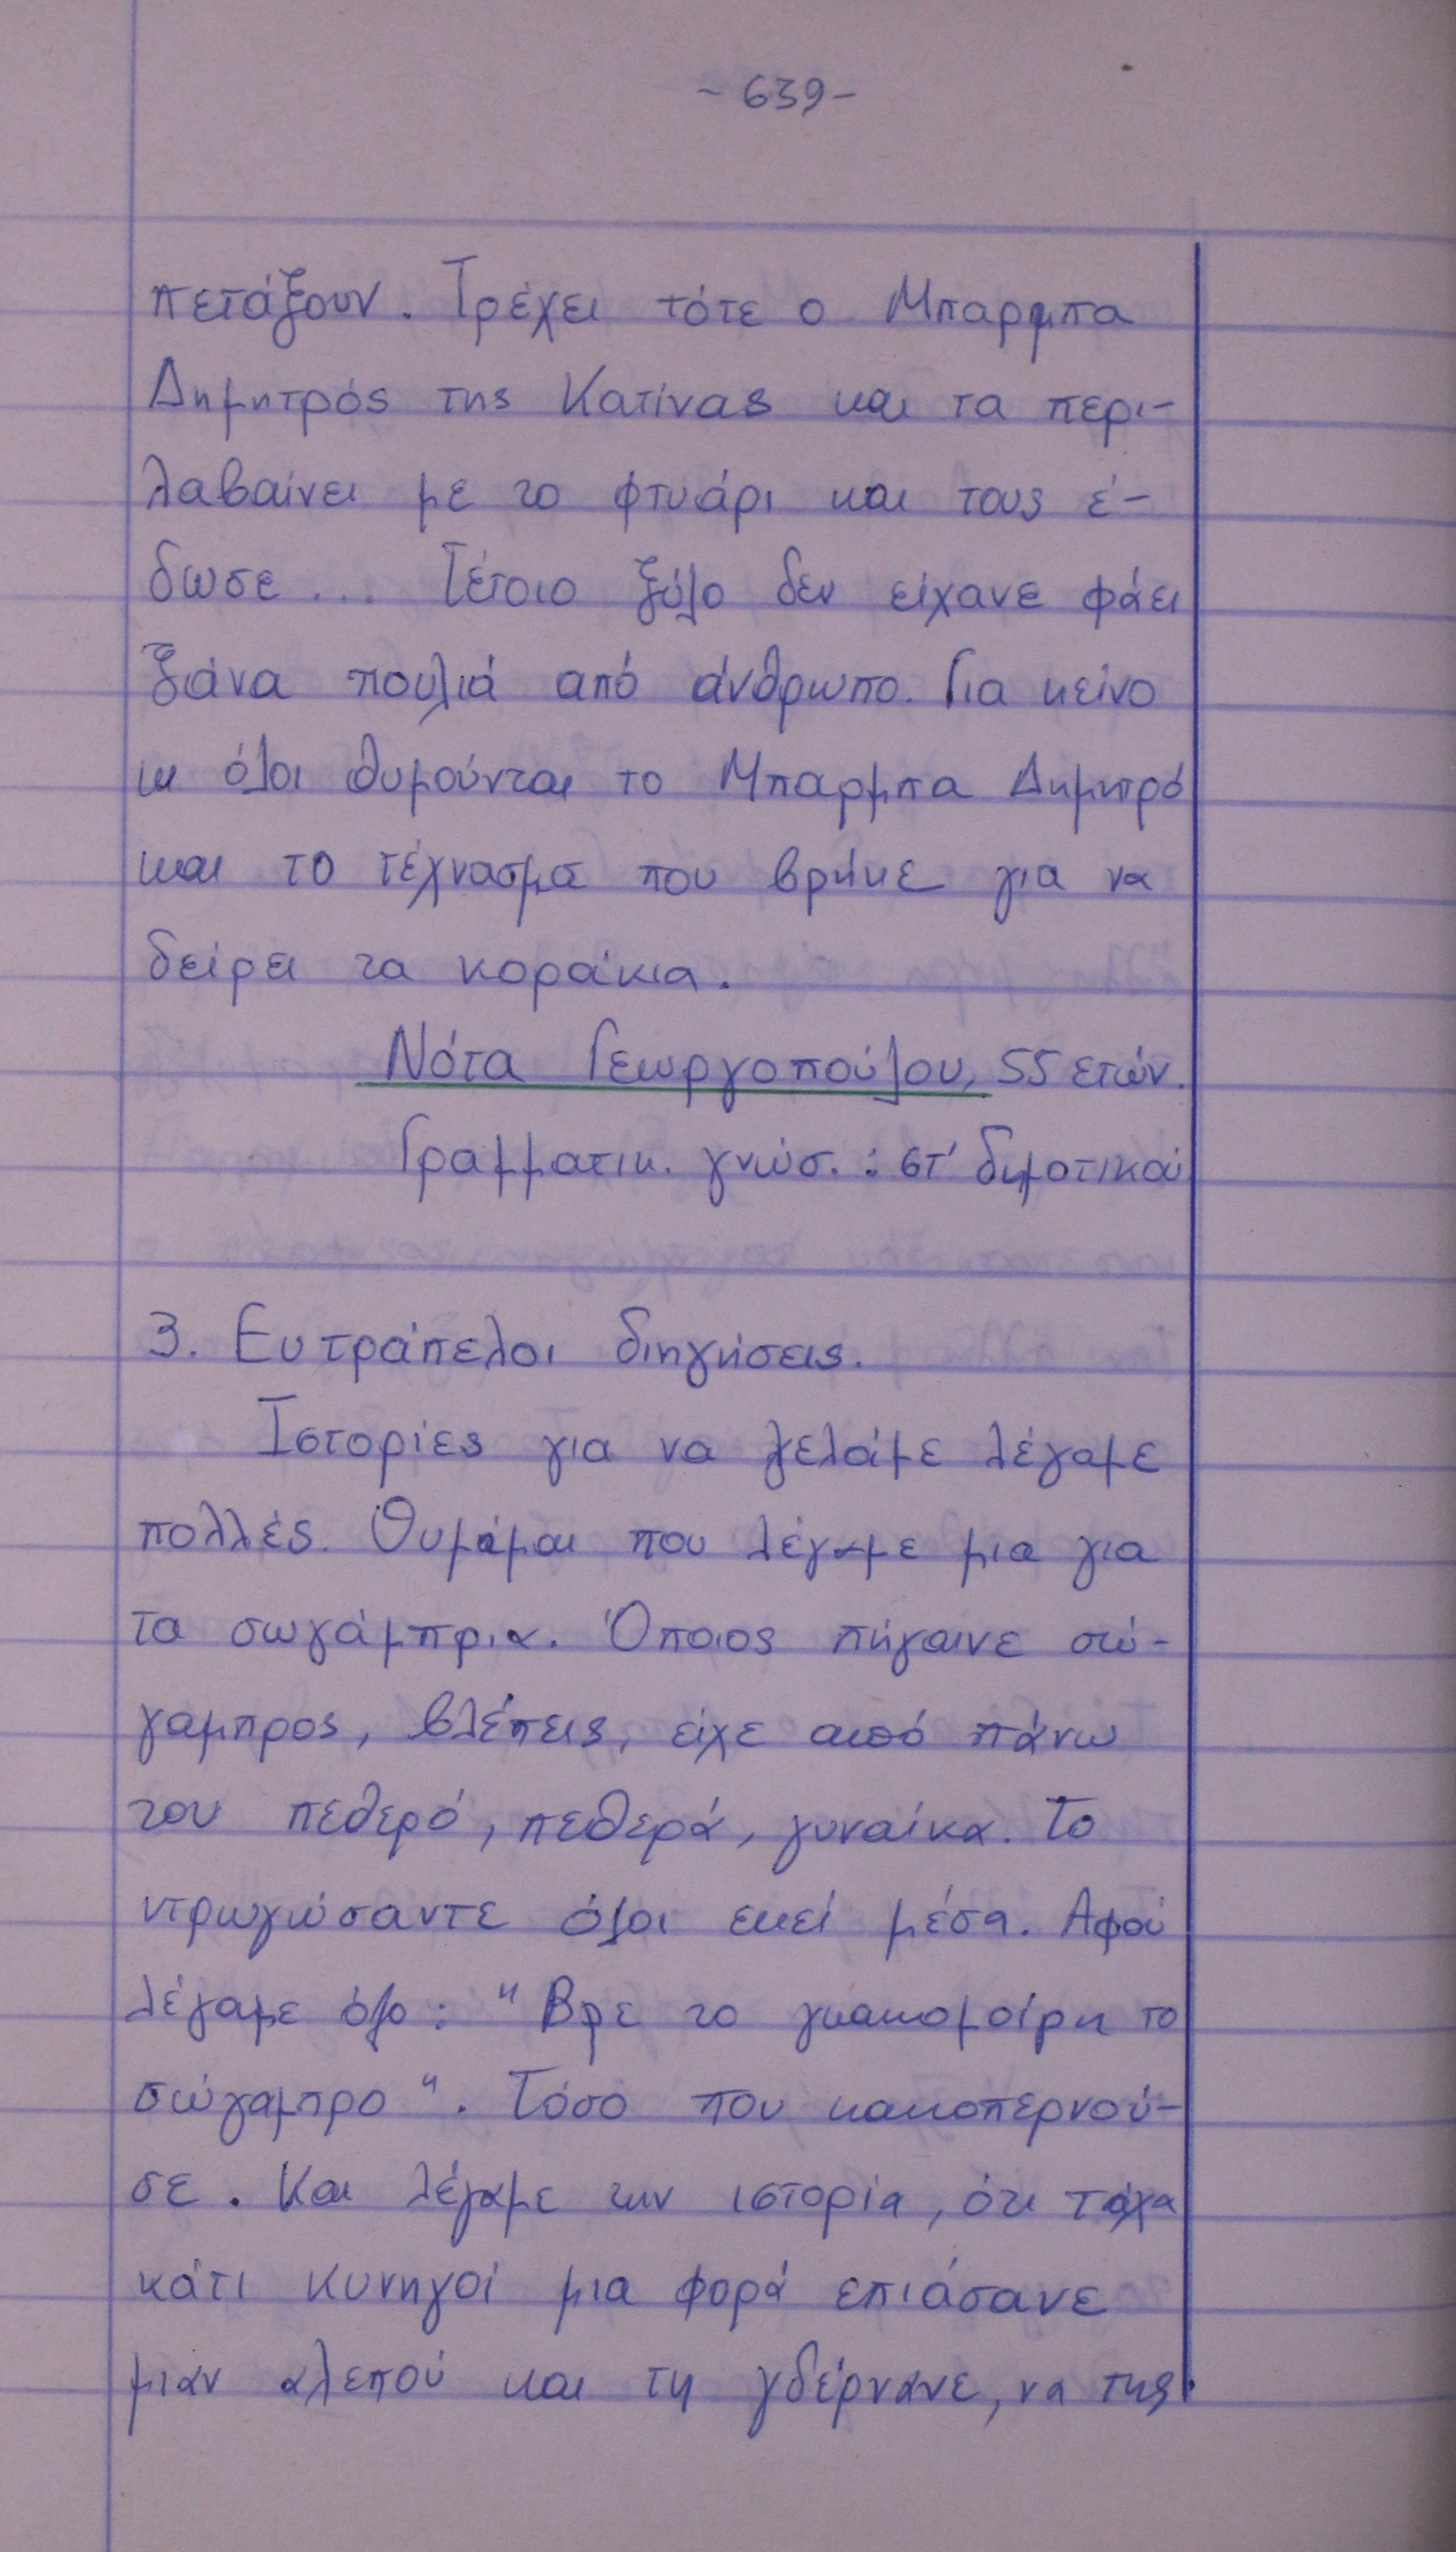 - 639 -
πετάξουν. Τρέχει τότε ο Μπαρμπα
Δημητρός της Κατίνας και τα περι-
λαβαίνει με το φτυάρι και τους έ-
δωσε ... Τέτοιο ξύλο δεν είχανε φάει
ξάνα πουλιά από άνθρωπο. Για κείνο
κι όλοι θυμούνται το Μπαρμπα Δημητρό
και το τέχνασμα που βρήκε για να
δείρει τα κοράκια.
Νότα Γεωργοπούλου, 55 ετών.
Γραμματικ. γνώσ. : στ' δημοτικού
3. Ευτράπελοι διηγήσεις.
Ιστορίες για να γελάμε λέγαμε
πολλές. Θυμάμαι που λέγαμε μια για
τα σωγάμπρια. Όποιος πήγαινε σώ-
γαμπρος, βλέπεις, είχε από πάνω
του πεθερό, πεθερά, γυναίκα. Το
ντρωγώσαντε όλοι εκεί μέσα. Αφού
λέγαμε όλο: "Βρε το γκακομοίρη το
σώγαμπρο". Τόσο που κακοπερνού-
σε. Και λέγαμε την ιστορία, ότι τάχα
κάτι κυνηγοί μια φορά επιάσανε
μιαν αλεπού και τη γδέρνανε, να της